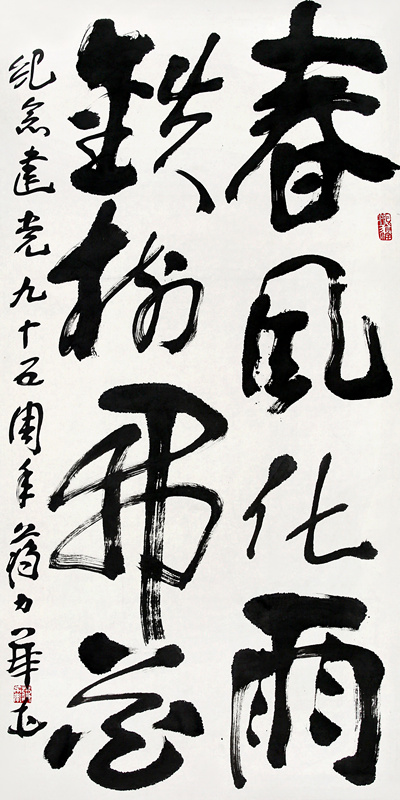 春風化雨
鉄樹開花
纪念建党九十五周年蒋力華书